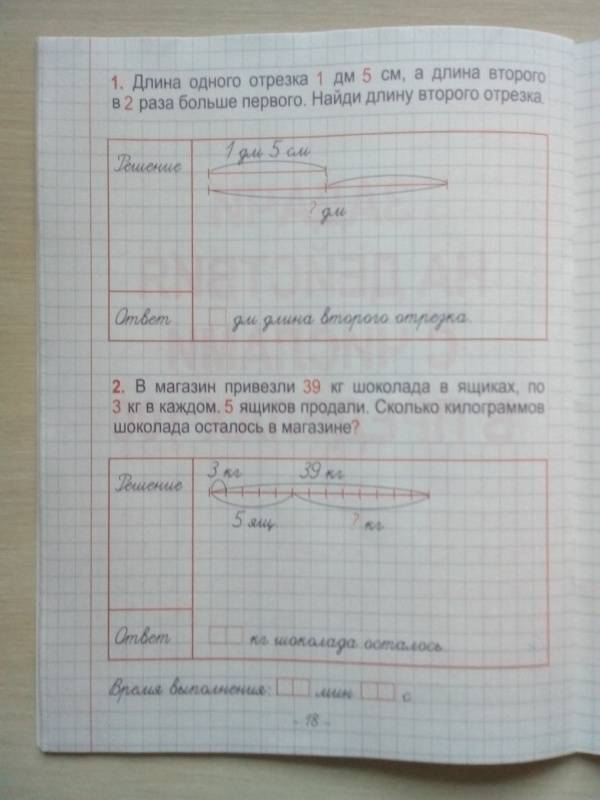 1. Длина одного отрезка 1 дм 5 см, а длина второго
в 2 раза больше первого. Найди длину второго отрезка.
Решение
1 дм 5 см
? дм
Ответ
дм длина второго отрезка.
2. В магазин привезли 39 кг шоколада в ящиках, по
3 кг в каждом. 5 ящиков продали. Сколько килограммов
шоколада осталось в магазине?
Решение
3 кг 39 кг
5 ящ. ? кг
Ответ
кг шоколада осталось.
Время выполнения: мин с
- 18 -